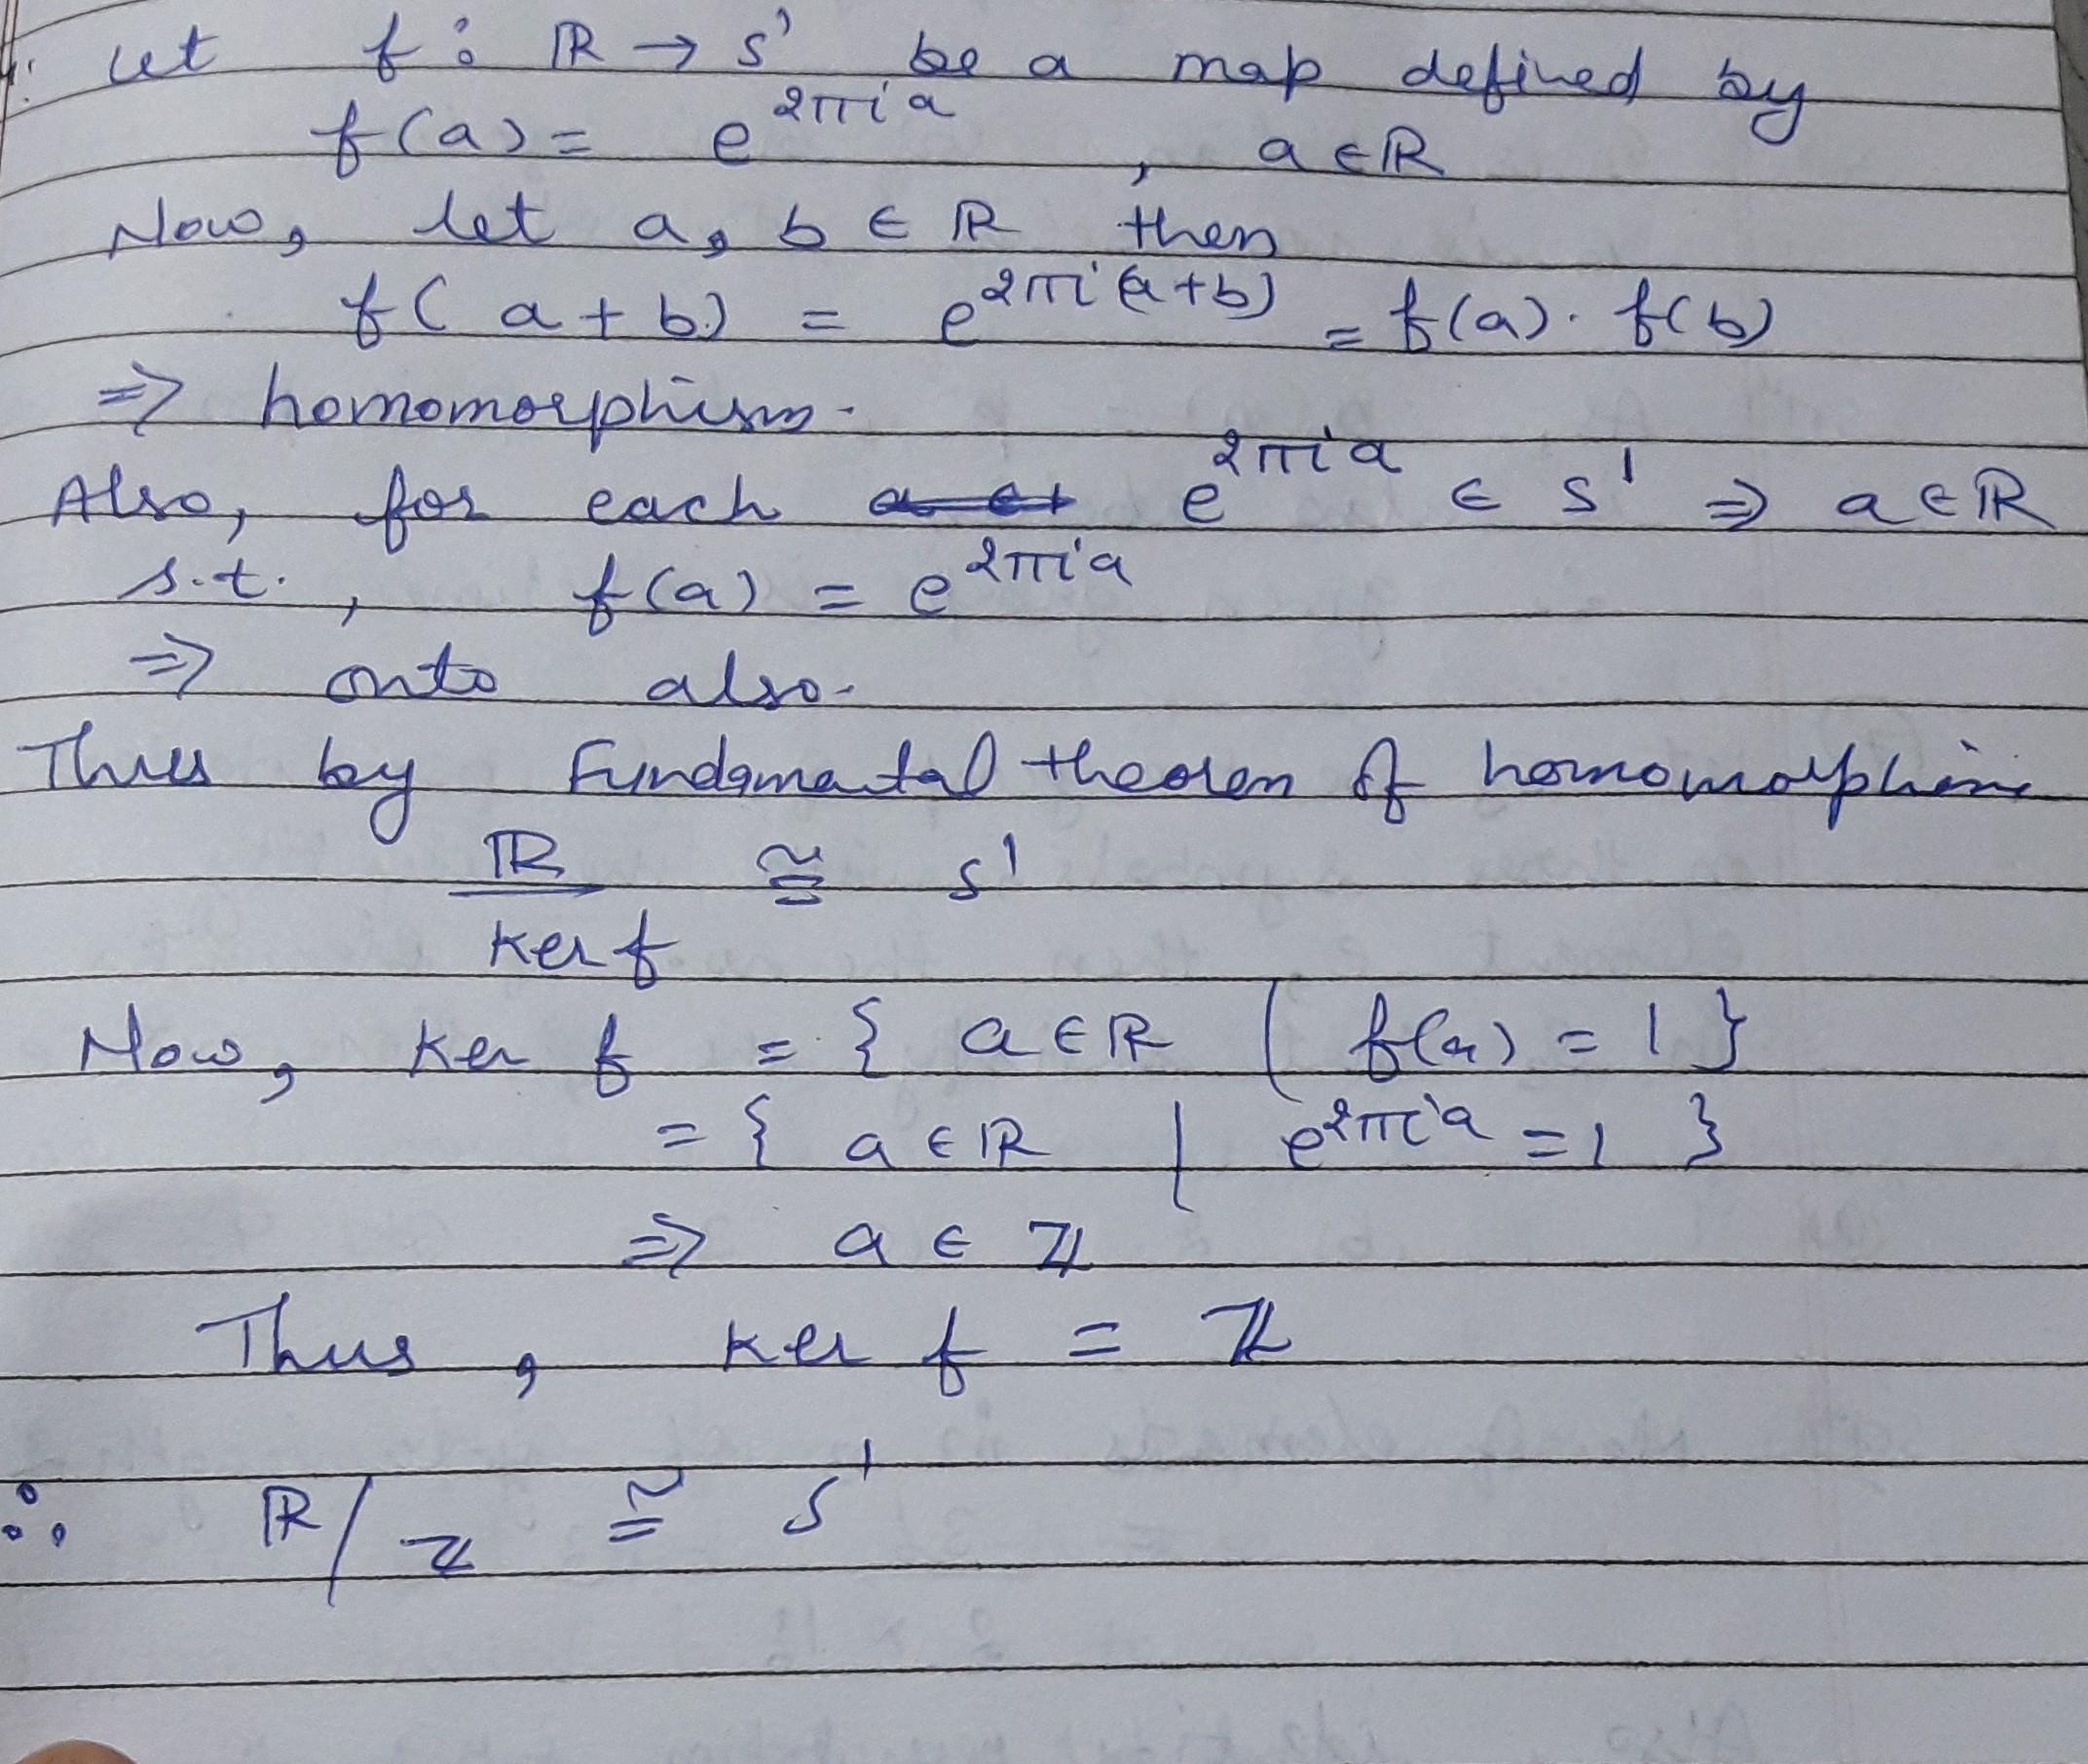 Let f : ℝ → S' be a map defined by
f(a) = e^{2πia} , a ∈ ℝ
Now, let a, b ∈ ℝ then
f(a+b) = e^{2πi(a+b)} = f(a). f(b)
⇒ homomorphism.
Also, for each e^{2πia} ∈ S' ⇒ a ∈ ℝ
s.t. , f(a) = e^{2πia}
⇒ onto also.
Thus by Fundamental theorem of homomorphism
ℝ/Ker f ≅ S'
Now, Ker f = { a ∈ ℝ | f(a) = 1 }
= { a ∈ ℝ | e^{2πia} = 1 }
⇒ a ∈ ℤ
Thus , Ker f = ℤ
∴ ℝ/ℤ ≅ S'